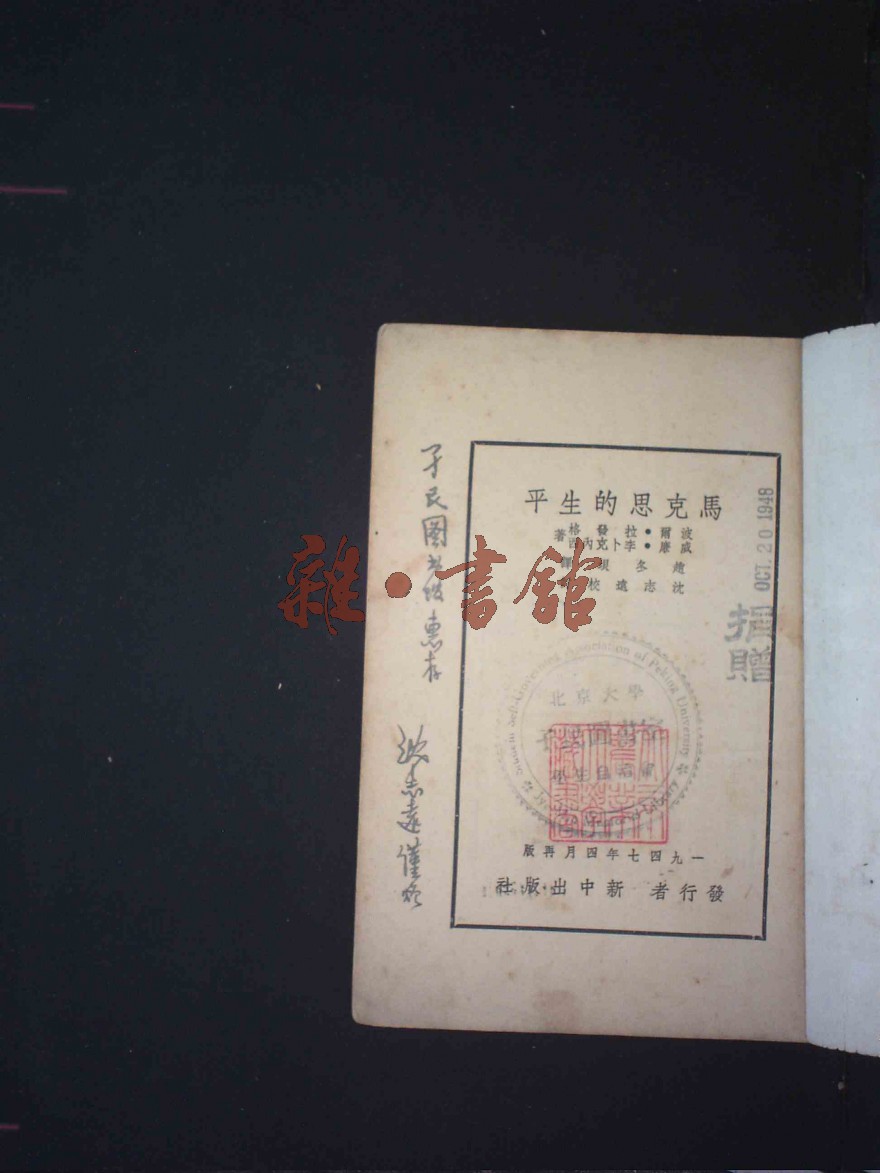 馬克思的生平
波爾•拉發格
威廉•李卜克內西
著
趙冬垠譯
沈志遠校
一九四七年四月再版
發行者 新中出版社
OCT. 20 1948
捐贈
北京大學
Student Self-Government Association of Peking University
子民圖書室
孑民圖書館惠存
沈志遠謹贈
雜•書館